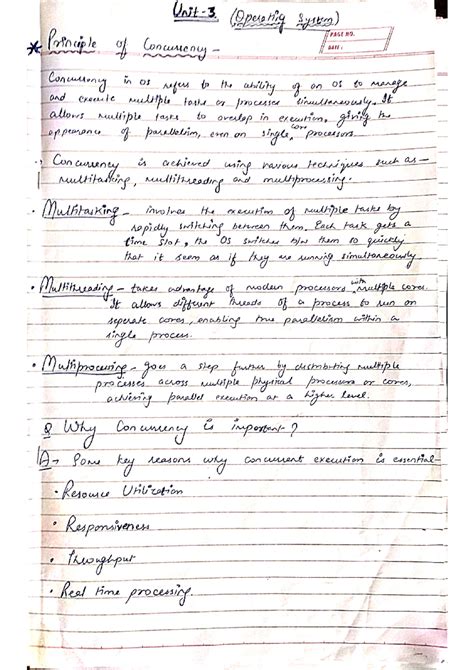 Unit-3 (Operating System)
PAGE NO.
DATE:
* Principle of Concurrency -
Concurrency in OS refers to the ability of an OS to manage
and execute multiple tasks or processes simultaneously. It
allows multiple tasks to overlap in execution, giving the
appearance of parallelism, even on single core processors.
Concurrency is achieved using various techniques such as -
multitasking, multithreading and multiprocessing.
• Multitasking - involves the execution of multiple tasks by
rapidly switching between them. Each task gets a
time slot, & the OS switches b/w them so quickly
that it seem as if they are running simultaneously
• Multithreading - takes advantage of modern processors with multiple cores.
It allows different threads of a process to run on
seperate cores, enabling true parallelism within a
single process.
• Multiprocessing - goes a step further by distributing multiple
processes across multiple physical processors or cores,
achieving parallel execution at a higher level.
Q Why Concurrency is important?
A- Some key reasons why concurrent execution is essential-
• Resource Utilization
• Responsiveness
• Throughput
• Real time processing.